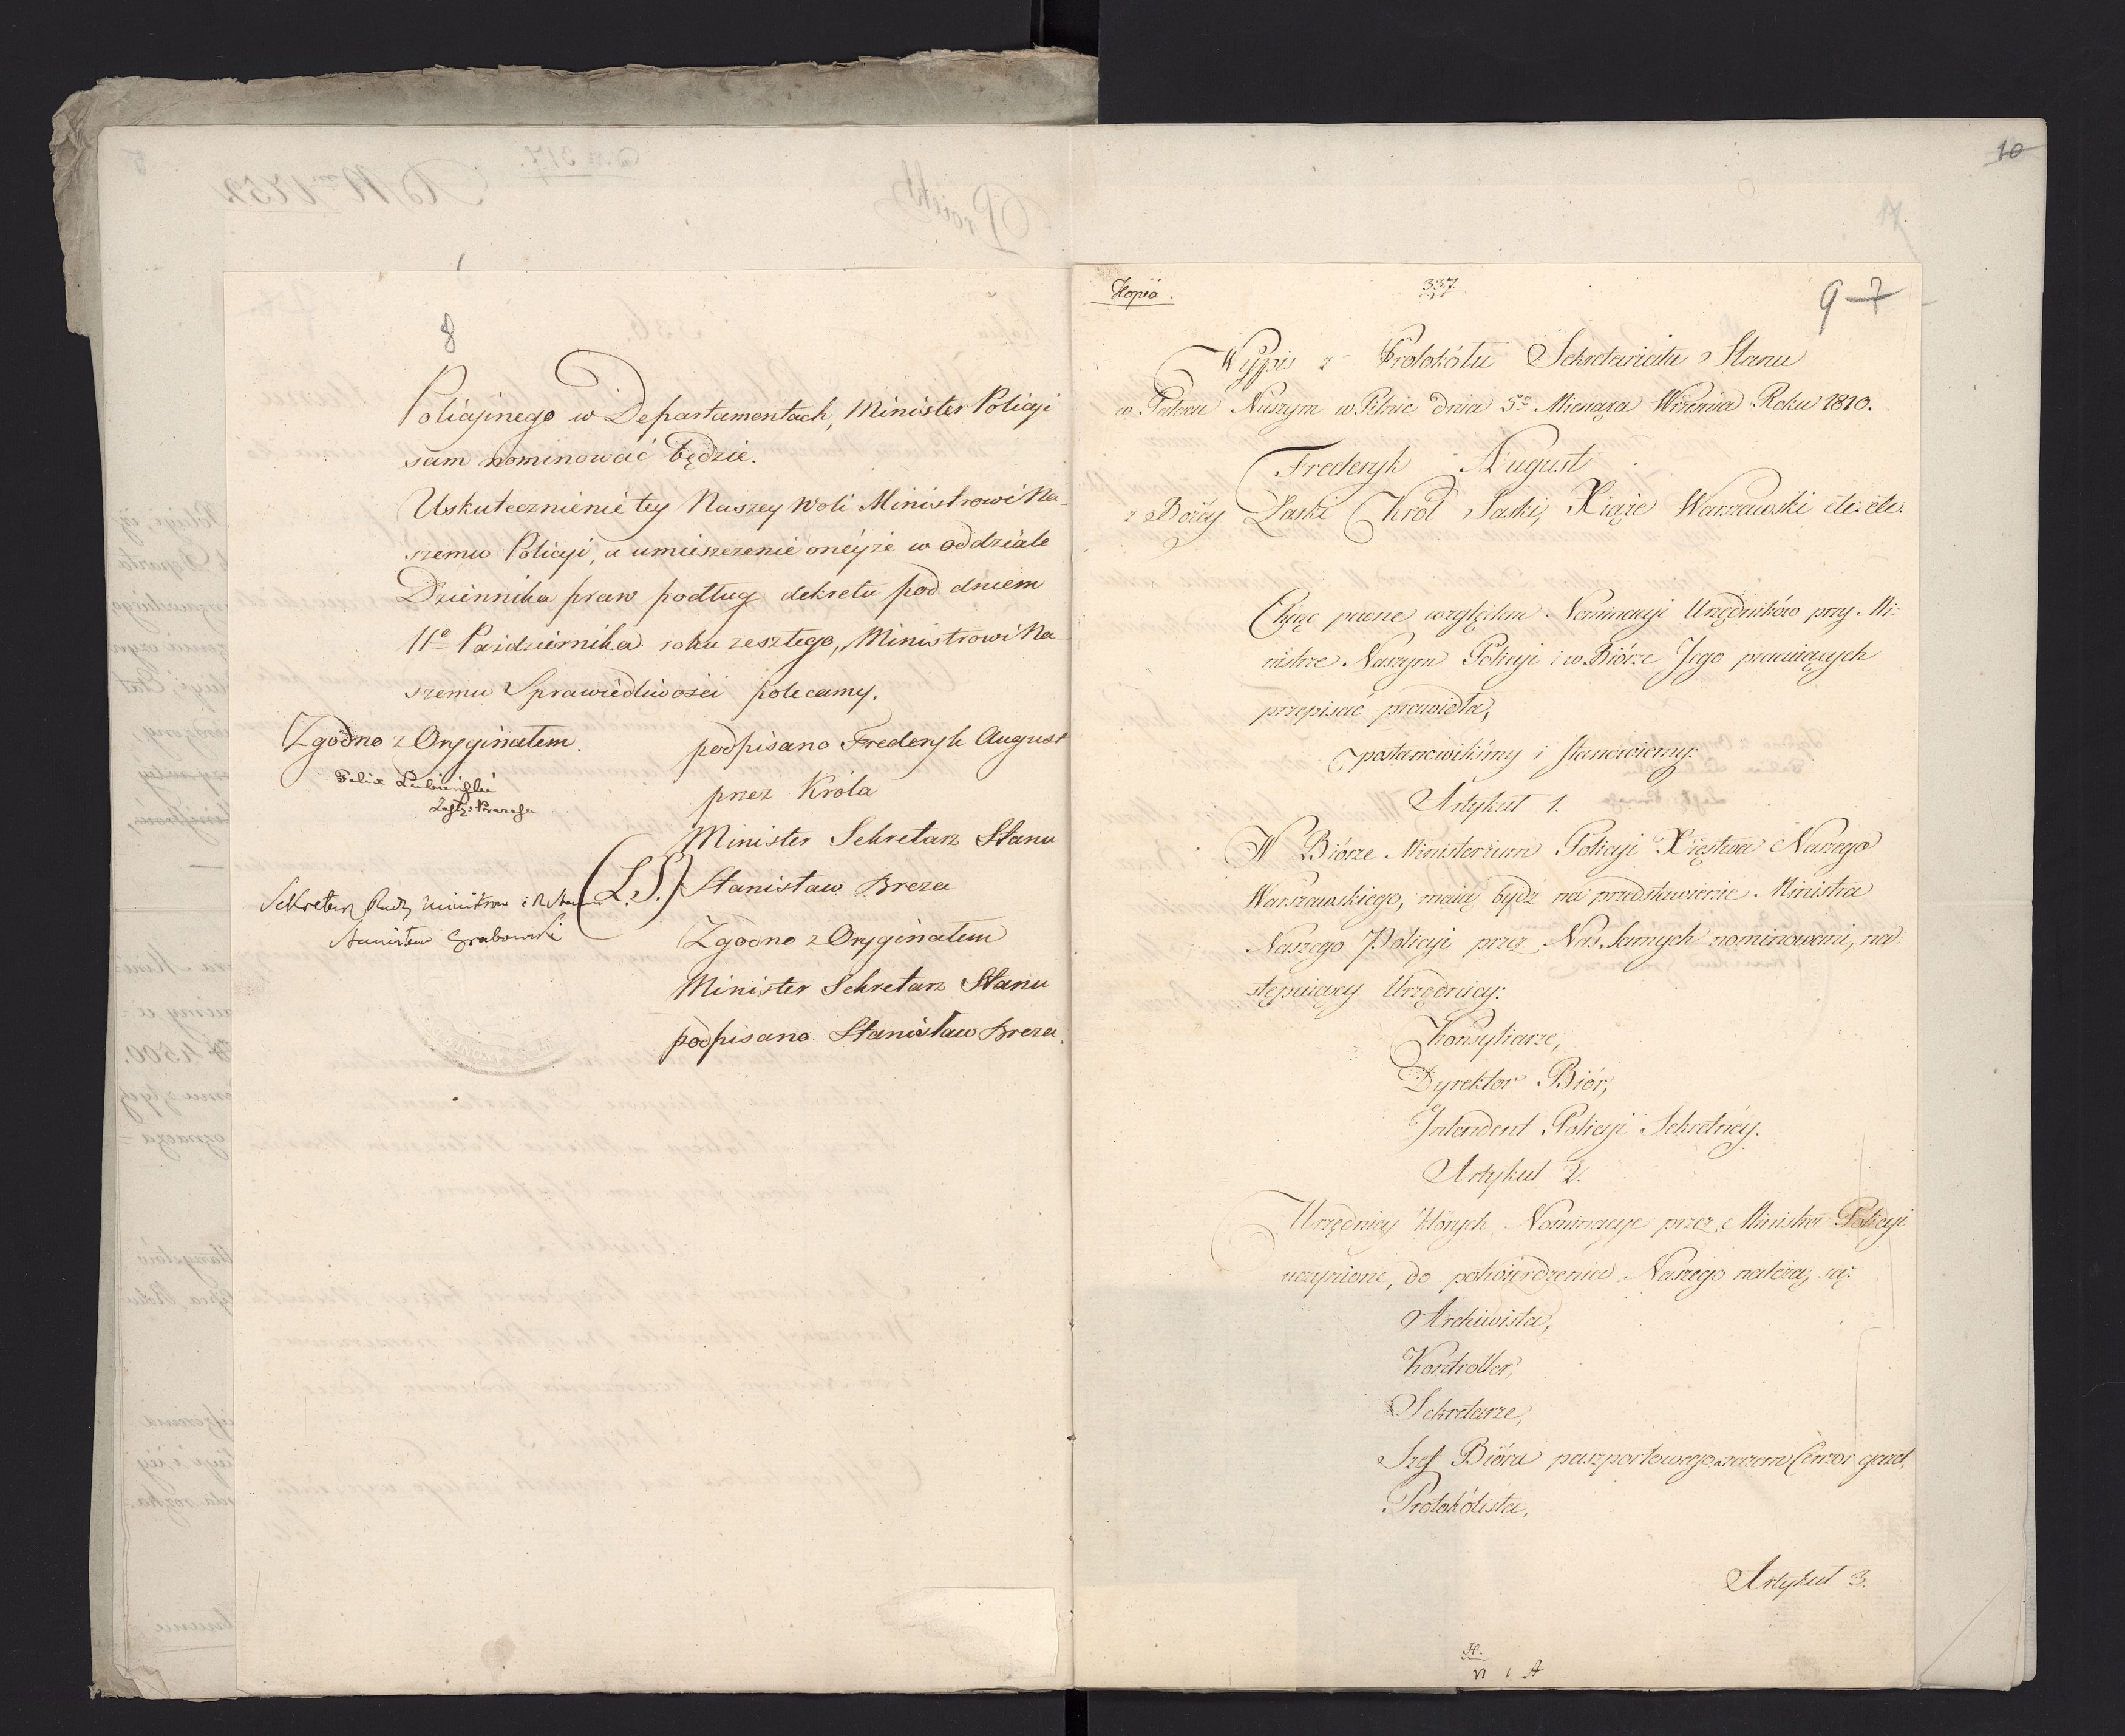 8
Policyinego w Departamentach, Minister Policyi
sam nominować będzie.
Uskutecznienie tey Naszey Woli Ministrowi Na-
szemu Policyi, a umieszczenie oneyże w oddziale
Dziennika praw podług dekretu pod dniem
11º Października roku zeszłego, Ministrowi Na
szemu Sprawiedliwości polecamy.
Zgodno z Oryginałem.
Felix Lubieński
Zastę: Prezesa
podpisano Frederyk August
przez Króla
Minister Sekretarz Stanu
(L.S.) Stanisław Breza
Sekretarz Rady Ministrow i R. Stanu
Stanisław Grabowski
Zgodno z Oryginałem
Minister Sekretarz Stanu
podpisano Stanisław Breza.
10
17.
Kopia.
337
9 7
Wypis z Protokółu Sekretariatu Stanu
w Pałacu Naszym w Pilnic dnia 5go Miesiąca Września Roku 1810.
Frederyk August
z Bożey Łaski Król Saski, Xiąże Warszawski etc: etc:
Chcąc pewne względem Nominacyi Urzędników przy Mi-
nistrze Naszym Policyi i w Biórze Jego pracuiących
przepisać prawidła,
postanowiliśmy i stanowiemy:
Artykuł 1.
W Biórze Ministerium Policyi Xięstwa Naszego
Warszawskiego, maią bydź na przedstawienie Ministra
Naszego Policyi przez Nas Samych nominowani, na-
stępuiący Urzędnicy:
Konsyliarze,
Dyrektor Biór,
Intendent Policyi Sekretnéy.
Artykuł 2.
Urzędnicy których Nominacye przez Ministra Policyi
uczynione, do potwierdzenia Naszego należą, są:
Archiwista,
Kontroller,
Sekretarze,
Szef Bióra paszportowego a razem Cenzor gazet,
Protokólista.
Artykuł 3.